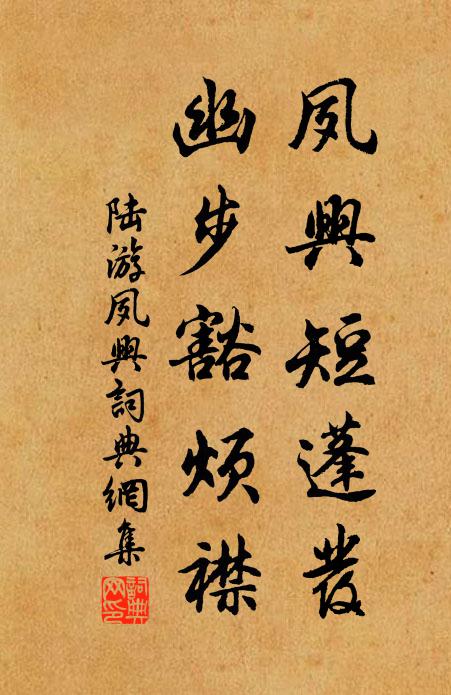 夙興短蓬發
幽步豁煩襟
陆游夙興詞典網集
詞典
网印